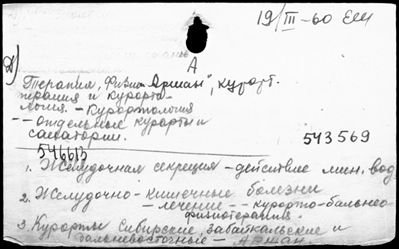 19/III-60 ЕШ
А
Д) Терапия, Физио "Аршан", курорт.
терапия и курорто-
логия. - Курортология
-- отдельные курорты и
санатории.
543569
546613
1. Желудочная секреция - действие мин. вод
2. Желудочно-кишечные болезни
- лечение -- курорто-бальнео
физиотерапия.
3. Курорты Сибирские, забайкальские и
дальневосточные - Аршан